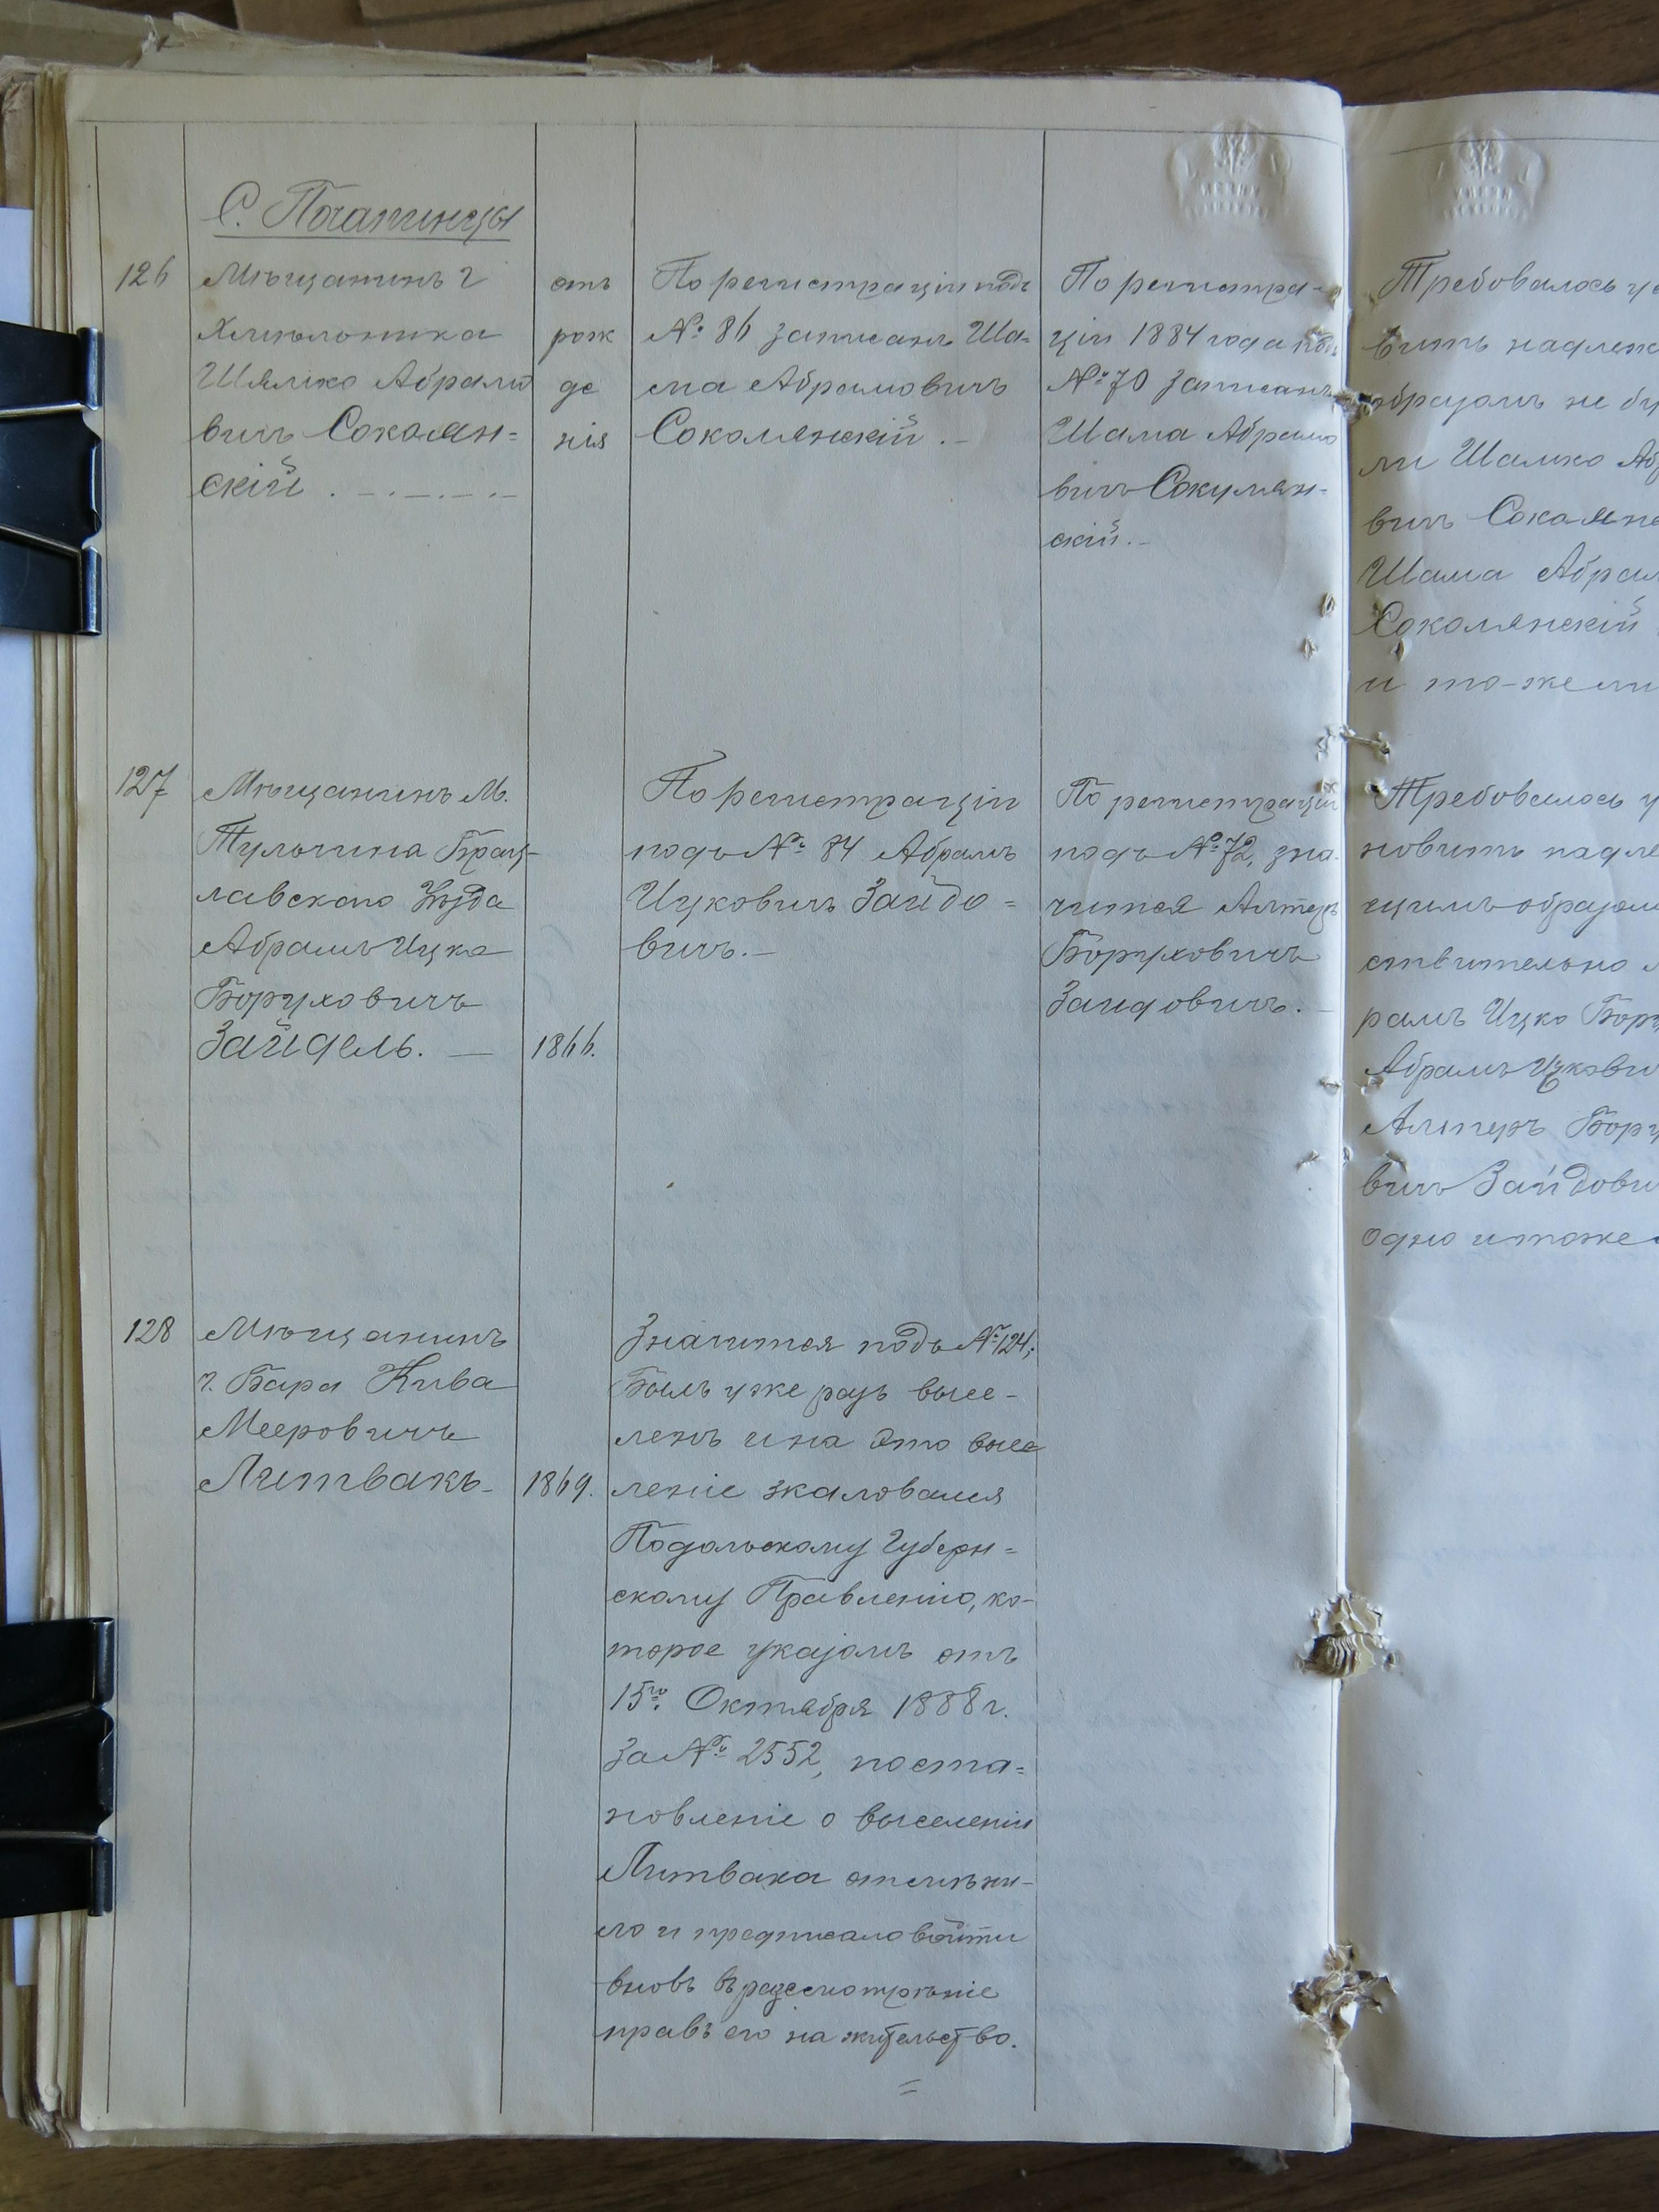 С. Почапинцы
126
Мѣщанинъ г
Хмѣльника
Шмлмко Абрамо
вичъ Соколян=
скій
отъ
рож
де
нія
По регистраціи подъ
№ 86 записанъ Ша=
ма Абрамовичъ
Соколянскій.-
По регистра-
ціи 1884 года подъ
№ 70 записанъ
Шама Абрамо
вичъ Сокулян-
скій.-
Требовалось
вить
образомъ не
ли Шамко
вичъ
Шама
Соколянскій
и то-же
127
Мѣщанинъ М.
Тульчина Брац-
лавскаго Уѣзда
Абрамъ Ицко
Боруховичъ
Зайдель. —
1866.
По регистраціи
подъ № 84 Абрамъ
Ицковичъ Зайдо=
вичъ.-
По регистраціи
подъ № 72, зна-
чится Алтеръ
Боруховичъ
Зайдовичъ.-
Требовалось
новить
щимъ образомъ
ствительно
рамъ Ицко
Абрамъ
Алтеръ
вичъ
одно и тоже
128
Мѣщанинъ
г. Бара Кива
Мееровичъ
Литвакъ-
1869.
Значится подъ № 124;
Былъ уже разъ высе-
ленъ и на это высе
леніе жаловался
Подольскому Губерн=
скому Правленію, ко-
торое указомъ отъ
15го Октября 1888 г.
за № 2552, поста=
новленіе о выселеніи
Литвака отмѣни-
ло и предписало войти
вновь въ разсмотрѣніе
правъ его на жительство.